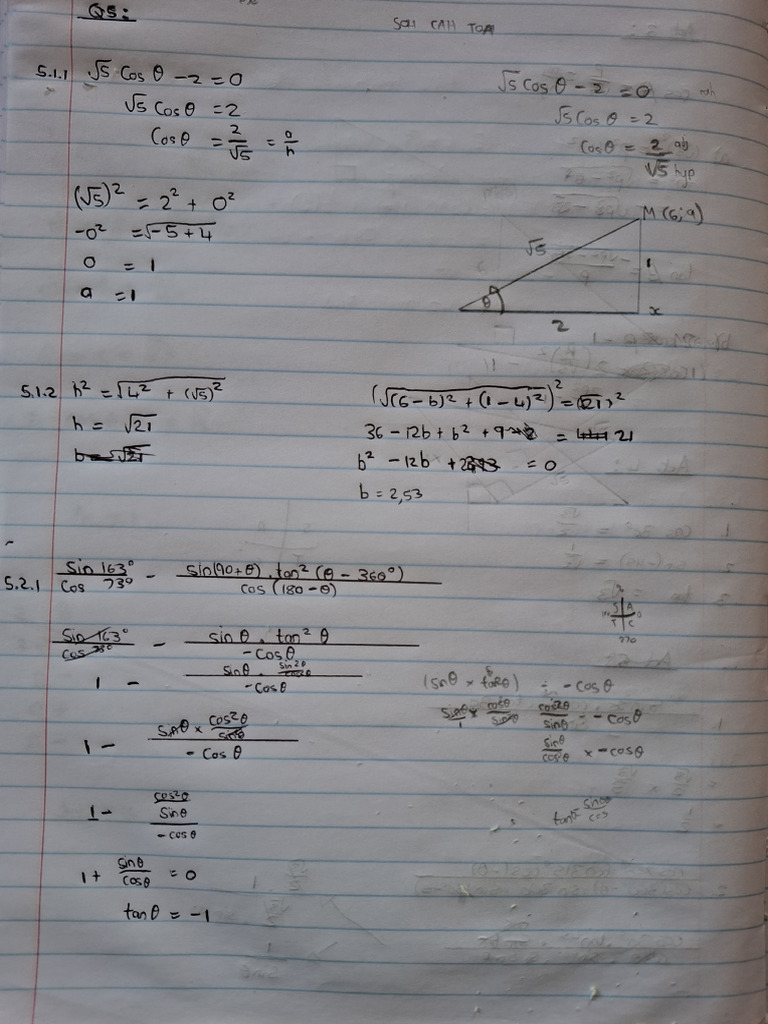 Q5:
SOH CAH TOA
5.1.1 √5 cos θ - 2 = 0
√5 cos θ = 2
cos θ = 2/√5 = o/h
(√5)² = 2² + o²
-o² = √-5+4
o = 1
a = 1
√5 cos θ - 2 = 0
√5 cos θ = 2
cos θ = 2/√5 adj hyp
M (6;a)
√5
1
θ
x
2
5.1.2 h² = √4² + (√5)²
h = √21
b = √21
(√(6-b)² + (1-4)²)² = (√21)²
36 - 12b + b² + 9 = 21
b² - 12b + 2 = 0
b = 2,53
5.2.1 sin 163°/cos 73° - sin(90+θ) . tan²(θ - 360°)/cos(180-θ)
sin 163°/cos 73° - sin θ . tan² θ/-cos θ
1 - sin θ . sin2θ/cos2θ/-cos θ
1 - sin θ × cos2θ/sinθ/-cos θ
1 - cos2θ/sin θ/-cos θ
1 + sin θ/cos θ = 0
tan θ = -1
S A
T C
270
(sin θ × tan2θ) ÷ -cos θ
sin θ/1 × cos θ/sin θ cos2θ/sin θ ÷ -cos θ
sin θ/cos2θ × -cos θ
tan sin θ/cos